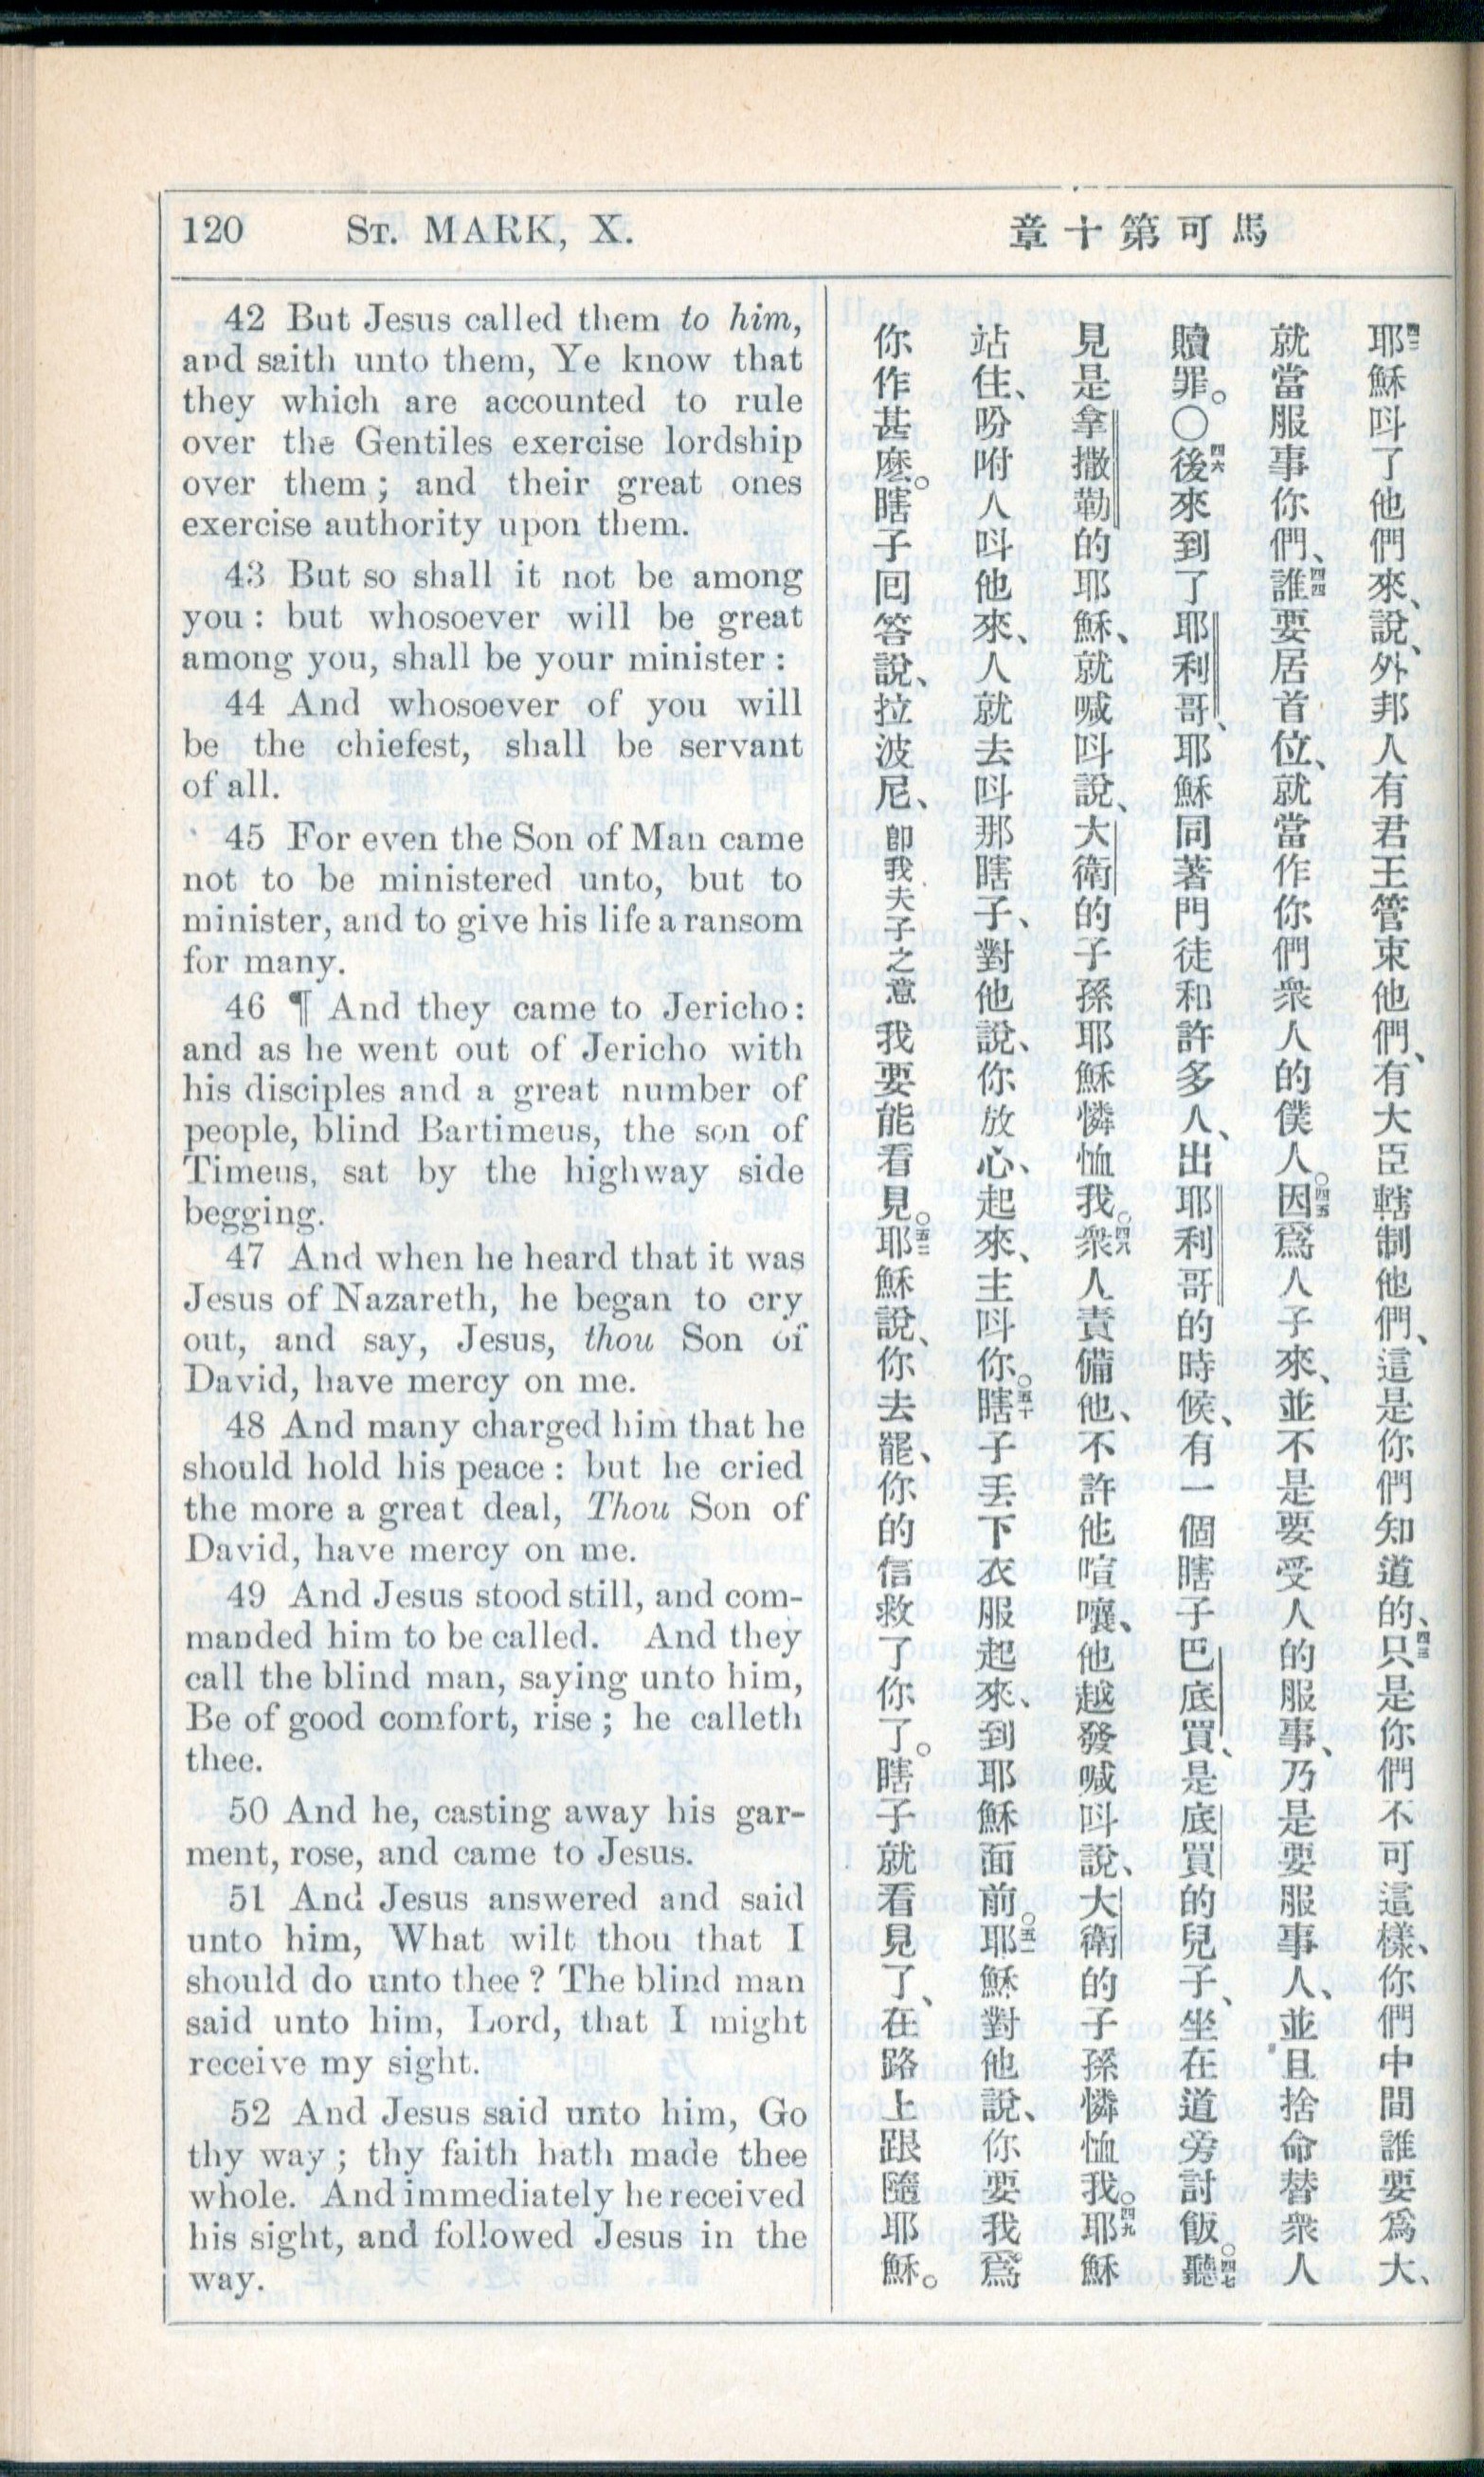 120 ST. MARK, X.
馬可第十章
42 But Jesus called them to him,
and saith unto them, Ye know that
they which are accounted to rule
over the Gentiles exercise lordship
over them; and their great ones
exercise authority upon them.
43 But so shall it not be among
you: but whosoever will be great
among you, shall be your minister:
44 And whosoever of you will
be the chiefest, shall be servant
of all.
45 For even the Son of Man came
not to be ministered unto, but to
minister, and to give his life a ransom
for many.
46 ¶ And they came to Jericho:
and as he went out of Jericho with
his disciples and a great number of
people, blind Bartimeus, the son of
Timeus, sat by the highway side
begging.
47 And when he heard that it was
Jesus of Nazareth, he began to cry
out, and say, Jesus, thou Son of
David, have mercy on me.
48 And many charged him that he
should hold his peace: but he cried
the more a great deal, Thou Son of
David, have mercy on me.
49 And Jesus stood still, and com-
manded him to be called. And they
call the blind man, saying unto him,
Be of good comfort, rise; he calleth
thee.
50 And he, casting away his gar-
ment, rose, and came to Jesus.
51 And Jesus answered and said
unto him, What wilt thou that I
should do unto thee? The blind man
said unto him, Lord, that I might
receive my sight.
52 And Jesus said unto him, Go
thy way; thy faith hath made thee
whole. And immediately he received
his sight, and followed Jesus in the
way.
四二耶穌呌了他們來、說、外邦人有君王管束他們、有大臣轄制他們、這是你們知道的、四三只是你們不可這樣、你們中間誰要爲大、
就當服事你們、四四誰要居首位、就當作你們衆人的僕人。四五因爲人子來、並不是要受人的服事、乃是要服事人、並且捨命替衆人
贖罪。〇四六後來到了耶利哥、耶穌同著門徒和許多人、出耶利哥的時候、有一個瞎子巴底買、是底買的兒子、坐在道旁討飯。四七聽
見是拿撒勒的耶穌、就喊呌說、大衛的子孫耶穌憐恤我。四八衆人責備他、不許他喧嚷、他越發喊呌說、大衛的子孫憐恤我。四九耶穌
站住、吩咐人呌他來、人就去呌那瞎子、對他說、你放心、起來、主呌你。五十瞎子丟下衣服起來、到耶穌面前。五一耶穌對他說、你要我爲
你作甚麽。瞎子回答說、拉波尼、卽我夫子之意我要能看見。五二耶穌說、你去罷、你的信救了你了。瞎子就看見了、在路上跟隨耶穌。